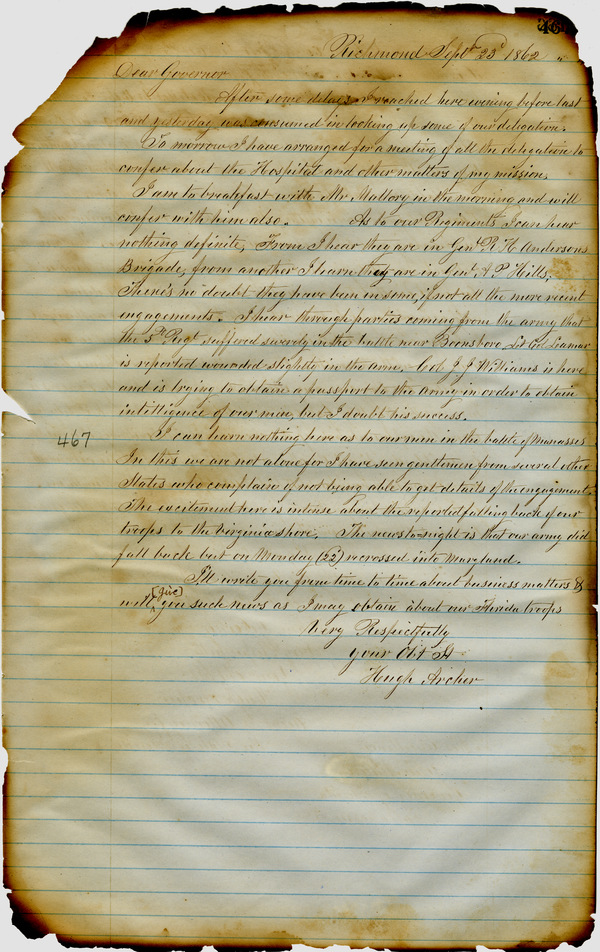 46
Richmond Sept 23d 1862
Dear Governor
After some delays I reached here evening before last
and yesterday was consumed in looking up some of our delegation.
To morrow I have arranged for a meeting of all the delegation to
confer about the Hospital and other matters of my mission.
I am to breakfast with Mr Mallory in the morning and will
confer with him also. As to our Regiments I can hear
nothing definite, From I hear they are in Genl R. H. Andersons
Brigade, from another I learn they are in Genl A P Hills,
There's no doubt they have been in some, if not all the more recent
engagements. I hear through parties coming from the army that
the 5th Regt suffered severely in the battle near Boonsboro, Lt Col Leamar
is reported wounded slightly in the arm. Col J. J Williams is here
and is trying to obtain a passport to the army in order to obtain
intelligence of our men, but I doubt his success.
467
I can learn nothing here as to our men in the battle of Manasses
In this we are not alone for I have seen gentlemen from several other
States who complain of not being able to get details of the engagement.
The excitement here is intense about the reported falling back of our
troops to the Virginia shore. The news to-night is that our army did
fall back but on Monday (22) recrossed into Maryland.
I'll write you from time to time about business matters &
will (give) you such news as I may obtain about our Florida troops
Very Respectfully
your Obt St
Hugh Archer